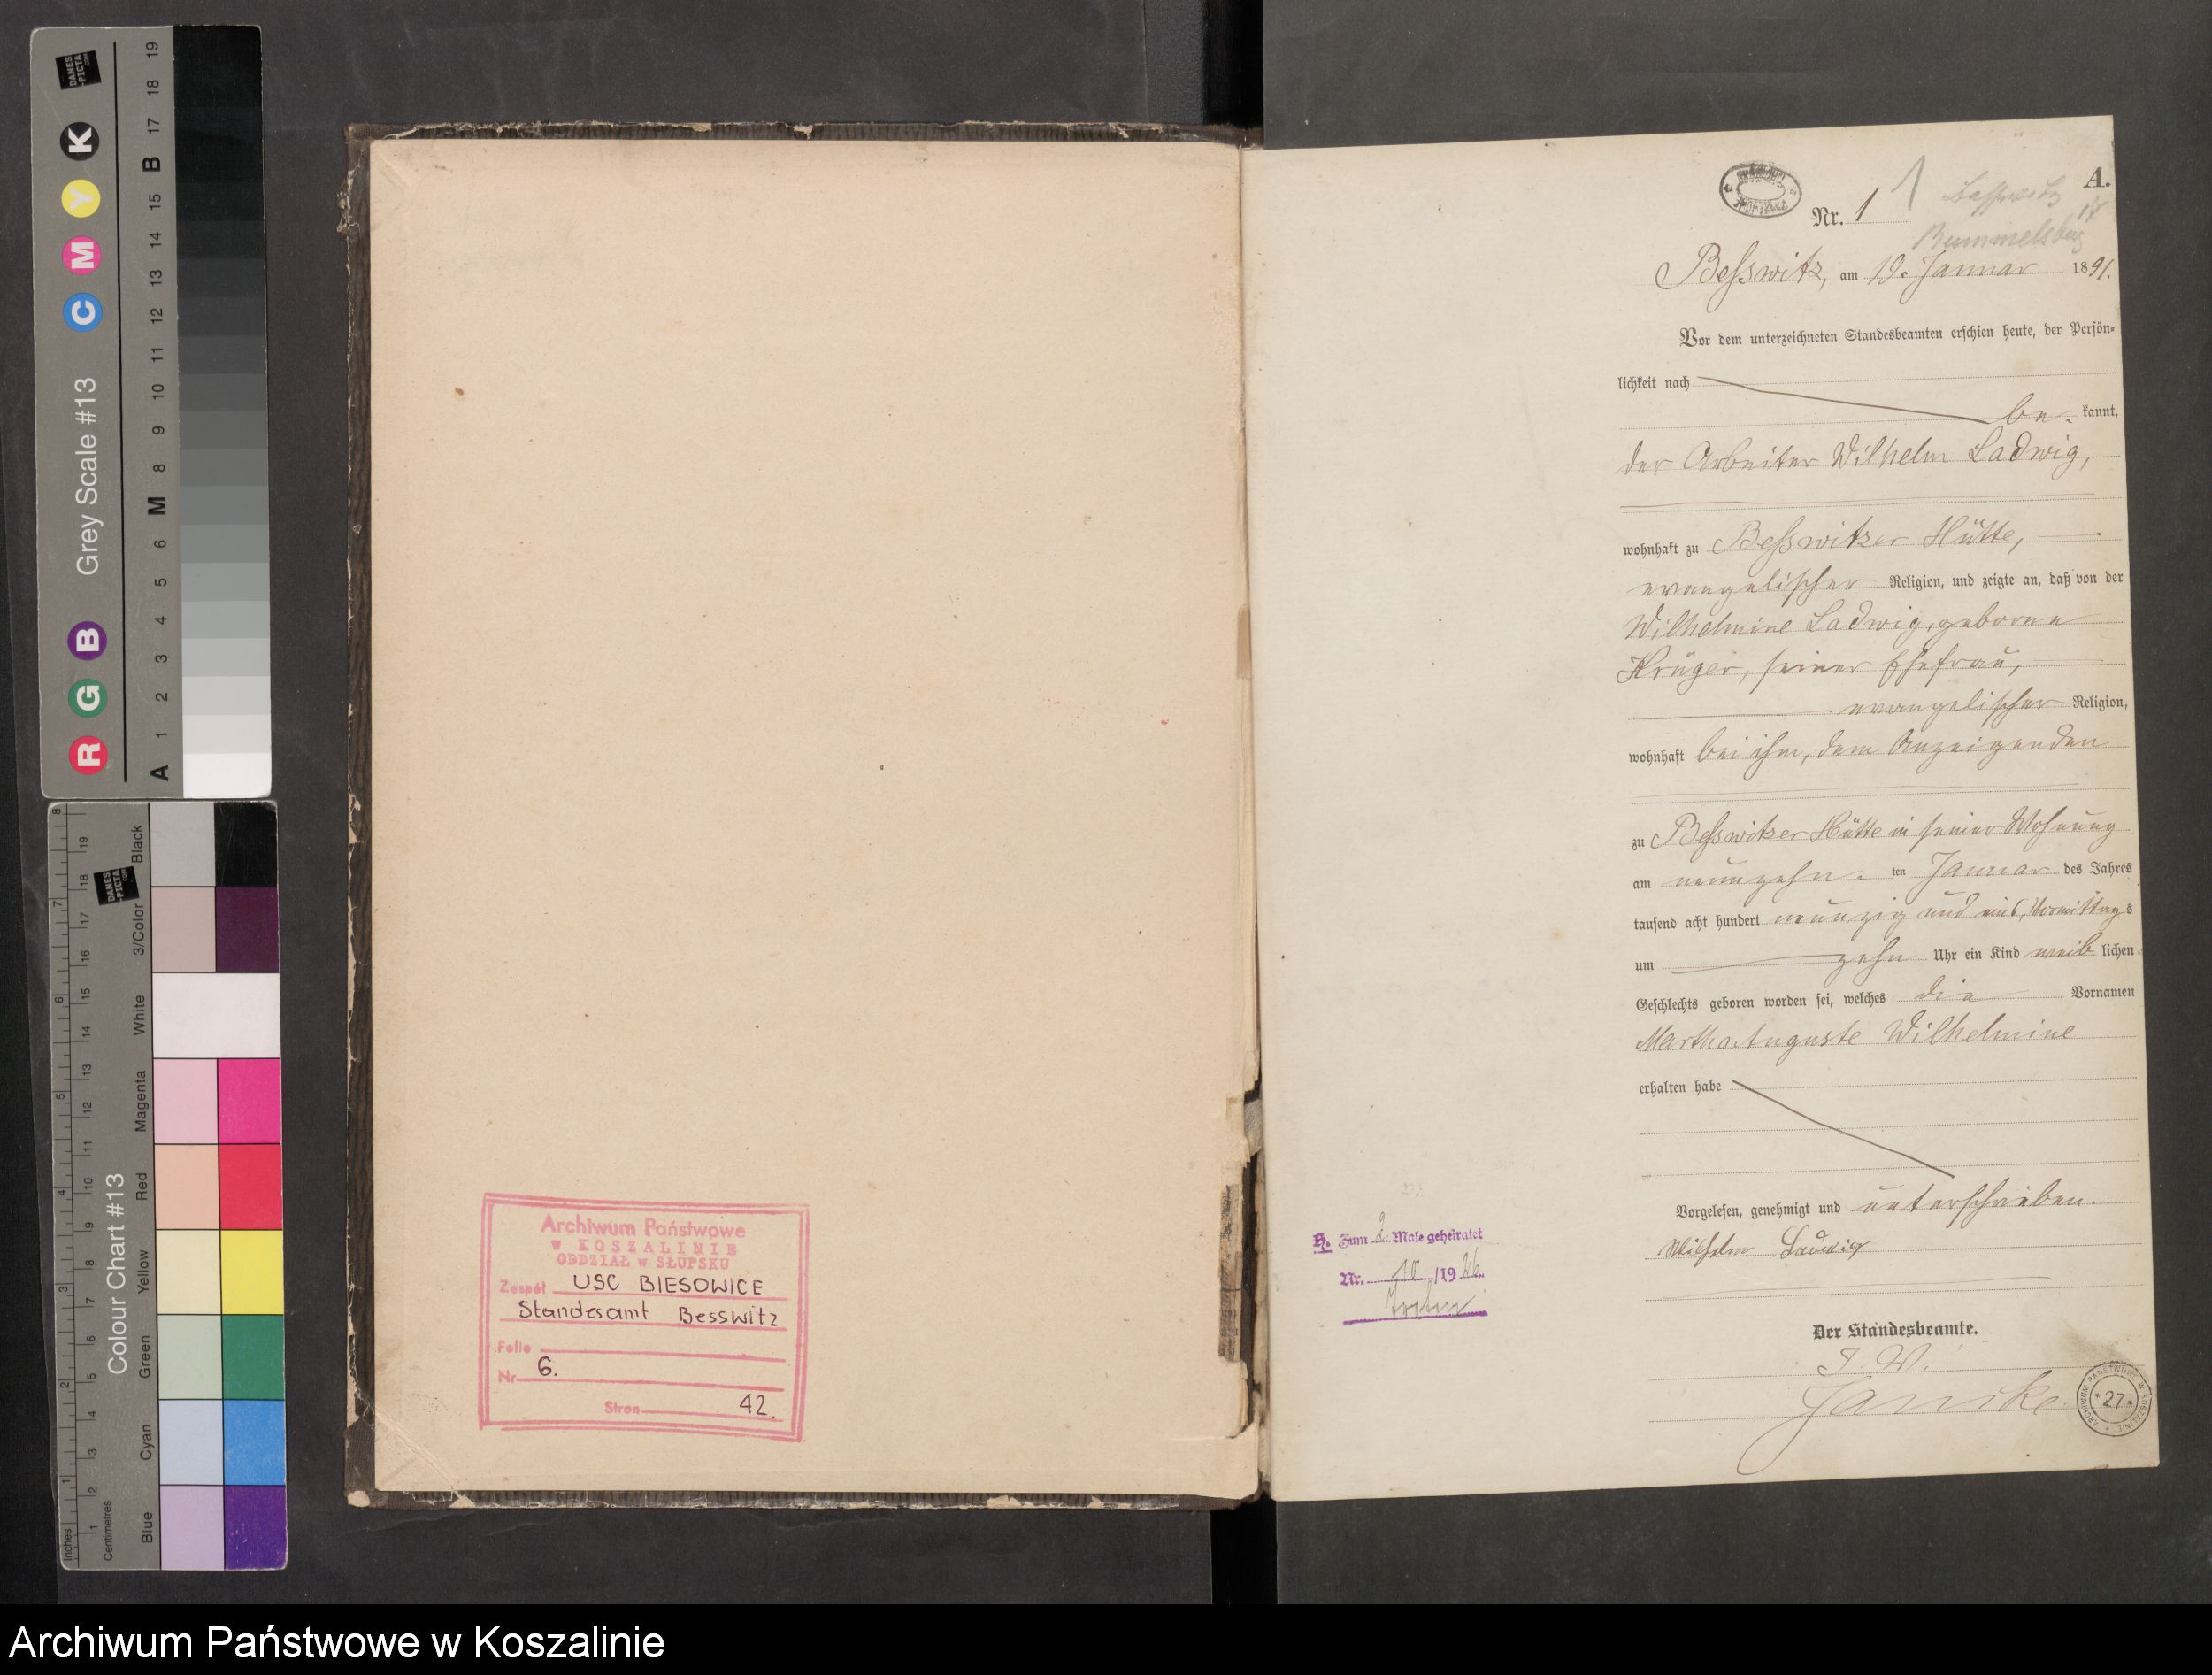 Grey Scale #13
R G B C M Y K
A 1 2 3 4 5 6 M 8 9 10 11 12 13 14 15 B 17 18 19
DANES
-PICTA
.COM
Colour Chart #13
Blue Cyan Green Yellow Red Magenta White 3/Color Black
Inches 1 2 3 4 5 6 7 8
Centimetres 1 2 3 4 5 6 7 8 9 10 11 12 13 14 15 16 17 18 19
DANES
-PICTA
.COM
Archiwum Państwowe
W KOSZALINIE
ODDZIAŁ W SŁUPSKU
Zespół USC BIESOWICE
Standesamt Besswitz
Folio
Nr 6.
Stron 42.
A.
Nr. 1 1
Rummelsburg
Beßwitz, am 19. Januar 1891.
Vor dem unterzeichneten Standesbeamten erschien heute, der Persön-
lichkeit nach
be. kannt,
der Arbeiter Wilhelm Ladwig,
wohnhaft zu Beßwitzer Hütte,
evangelischer Religion, und zeigte an, daß von der
Wilhelmine Ladwig, geborne
Krüger, seiner Ehefrau,
evangelischer Religion,
wohnhaft bei ihm, dem Anzeigenden
zu Beßwitzer Hütte in seiner Wohnung
am neunzehn. ten Januar des Jahres
tausend acht hundert neunzig und eins, Vormittags
um zehn Uhr ein Kind weib lichen
Geschlechts geboren worden sei, welches die Vornamen
Martha Auguste Wilhelmine
erhalten habe
Vorgelesen, genehmigt und unterschrieben.
Wilhelm Ladwig
Der Standesbeamte.
J. V.
Janike
H. Zum 2. Male geheiratet
Nr. 10 /1926.
ARCHIWUM PAŃSTWOWE W KOSZALINIE
* 27 *
Archiwum Państwowe w Koszalinie